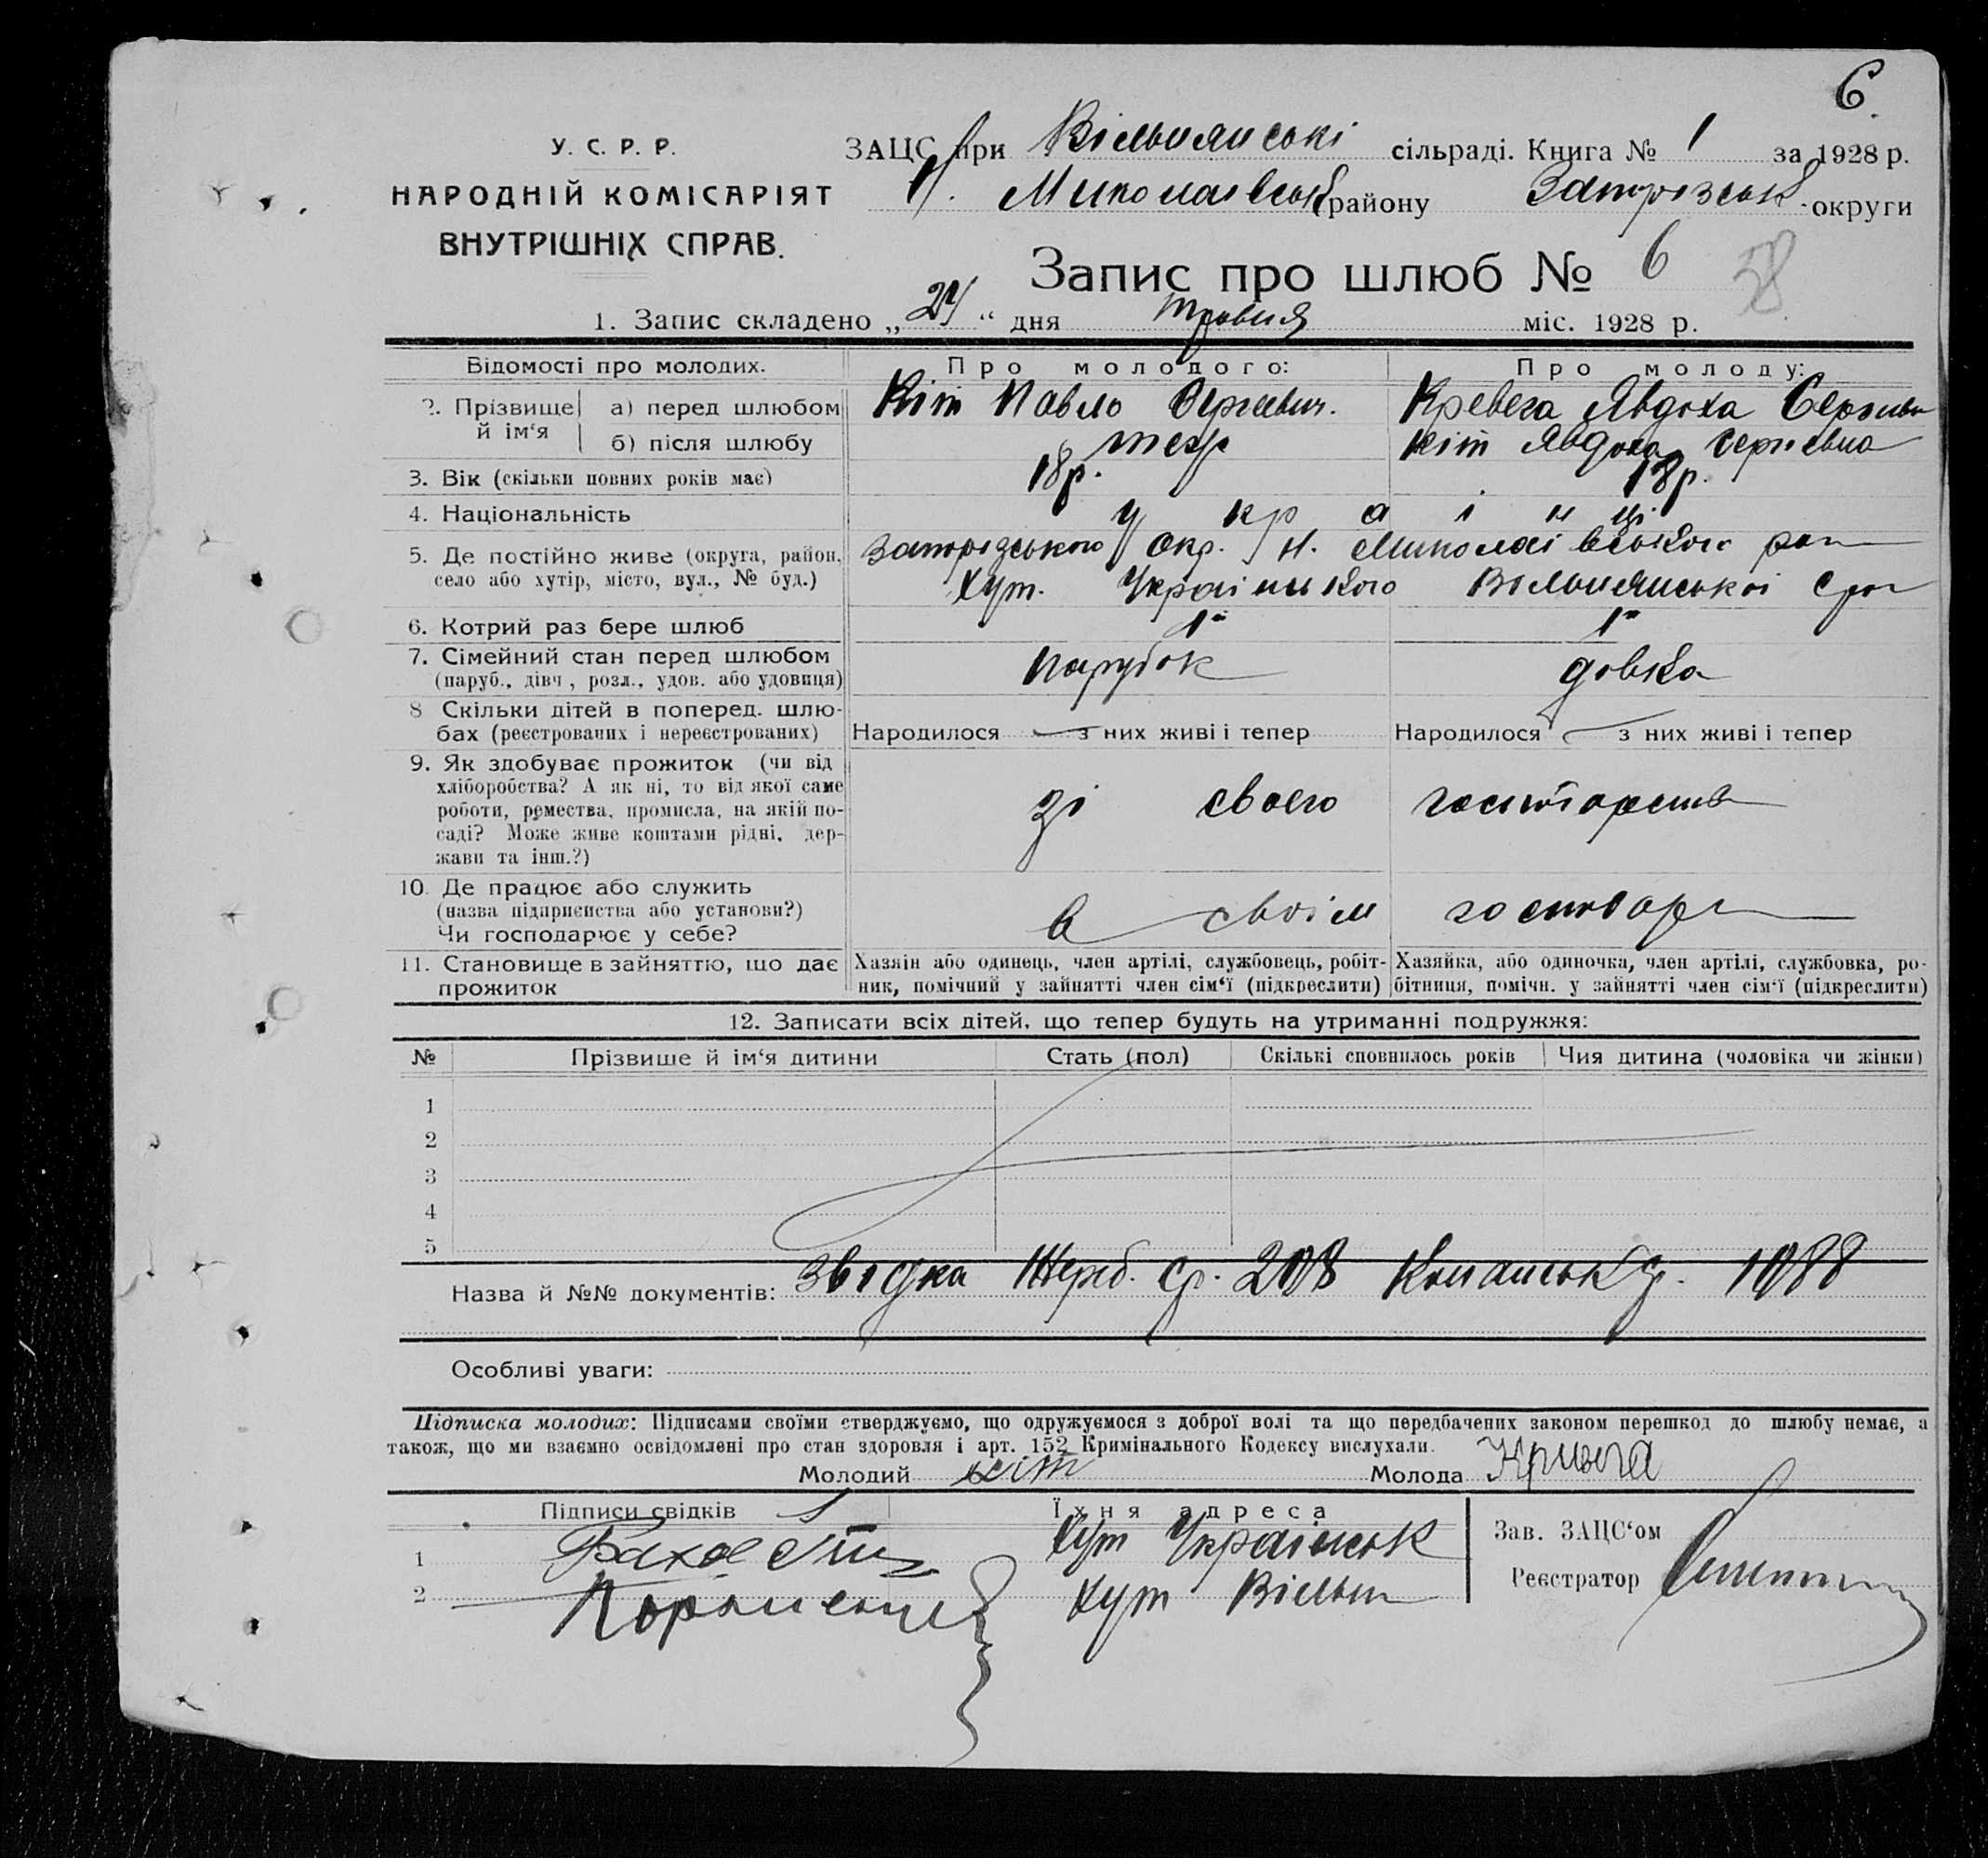 6
У. С. Р. Р.
НАРОДНІЙ КОМІСАРІЯТ
ВНУТРІШНІХ СПРАВ.
ЗАЦС при Вільнянські сільраді. Книга № 1 за 1928 р.
Н. Миколаївськ району Запорізськ. округи
Запис про шлюб № 6 58
1. Запис складено „24“ дня травня міс. 1928 р.
Відомості про молодих. Про молодого: Про молоду:
2. Прізвище й ім‘я а) перед шлюбом Кіт Павло Сергеевич. Кревега Явдоха
б) після шлюбу Кіт Явдоха Сергіевна
3. Вік (скільки повних років має) 18р. 18р.
4. Національність українці
5. Де постійно живе (округа, район, Запорізського окр. Н. Миколаівського
село або хутір, місто, вул., № буд.) Хут. Українського Вільнянської
6. Котрий раз бере шлюб 1й 1й
7. Сімейний стан перед шлюбом парубок дівка
(паруб., дівч, розл., удов. або удовиця)
8 Скільки дітей в поперед. шлю-
бах (реєстрованих і нереєстрованих) Народилося з них живі і тепер Народилося з них живі і тепер
9. Як здобуває прожиток (чи від
хліборобства? А як ні, то від якої саме
роботи, ремества, промисла, на якій по- зі своего господарства
саді? Може живе коштами рідні, дер-
жави та інш.?)
10. Де працює або служить
(назва підприємства або установи?) в своім господар
Чи господарює у себе?
11. Становище в зайняттю, що дає Хазяїн або одинець, член артілі, службовець, робіт- Хазяйка, або одиночка, член артілі, службовка, ро-
прожиток ник, помічний у зайнятті член сім‘ї (підкреслити) бітниця, помічн. у зайнятті член сім‘ї (підкреслити)
12. Записати всіх дітей, що тепер будуть на утриманні подружжя:
№ Прізвише й ім‘я дитини Стать (пол) Скількі сповнилось років Чия дитина (чоловіка чи жінки)
1
2
3
4
5
Назва й №№ документів: звідка Жереб. ср. 208 1088
Особливі уваги:
Підписка молодих: Підписами своїми стверджуємо, що одружуємося з доброї волі та що передбачених законом перешкод до шлюбу немає, а
також, що ми взаємно освідомлені про стан здоровля і арт. 152 Кримінального Кодексу вислухали.
Молодий кіт Молода Кривега
Підписи свідків Їхня адреса
1 Хут Українськ Зав. ЗАЦС‘ом
2 Хут Вільн Реєстратор